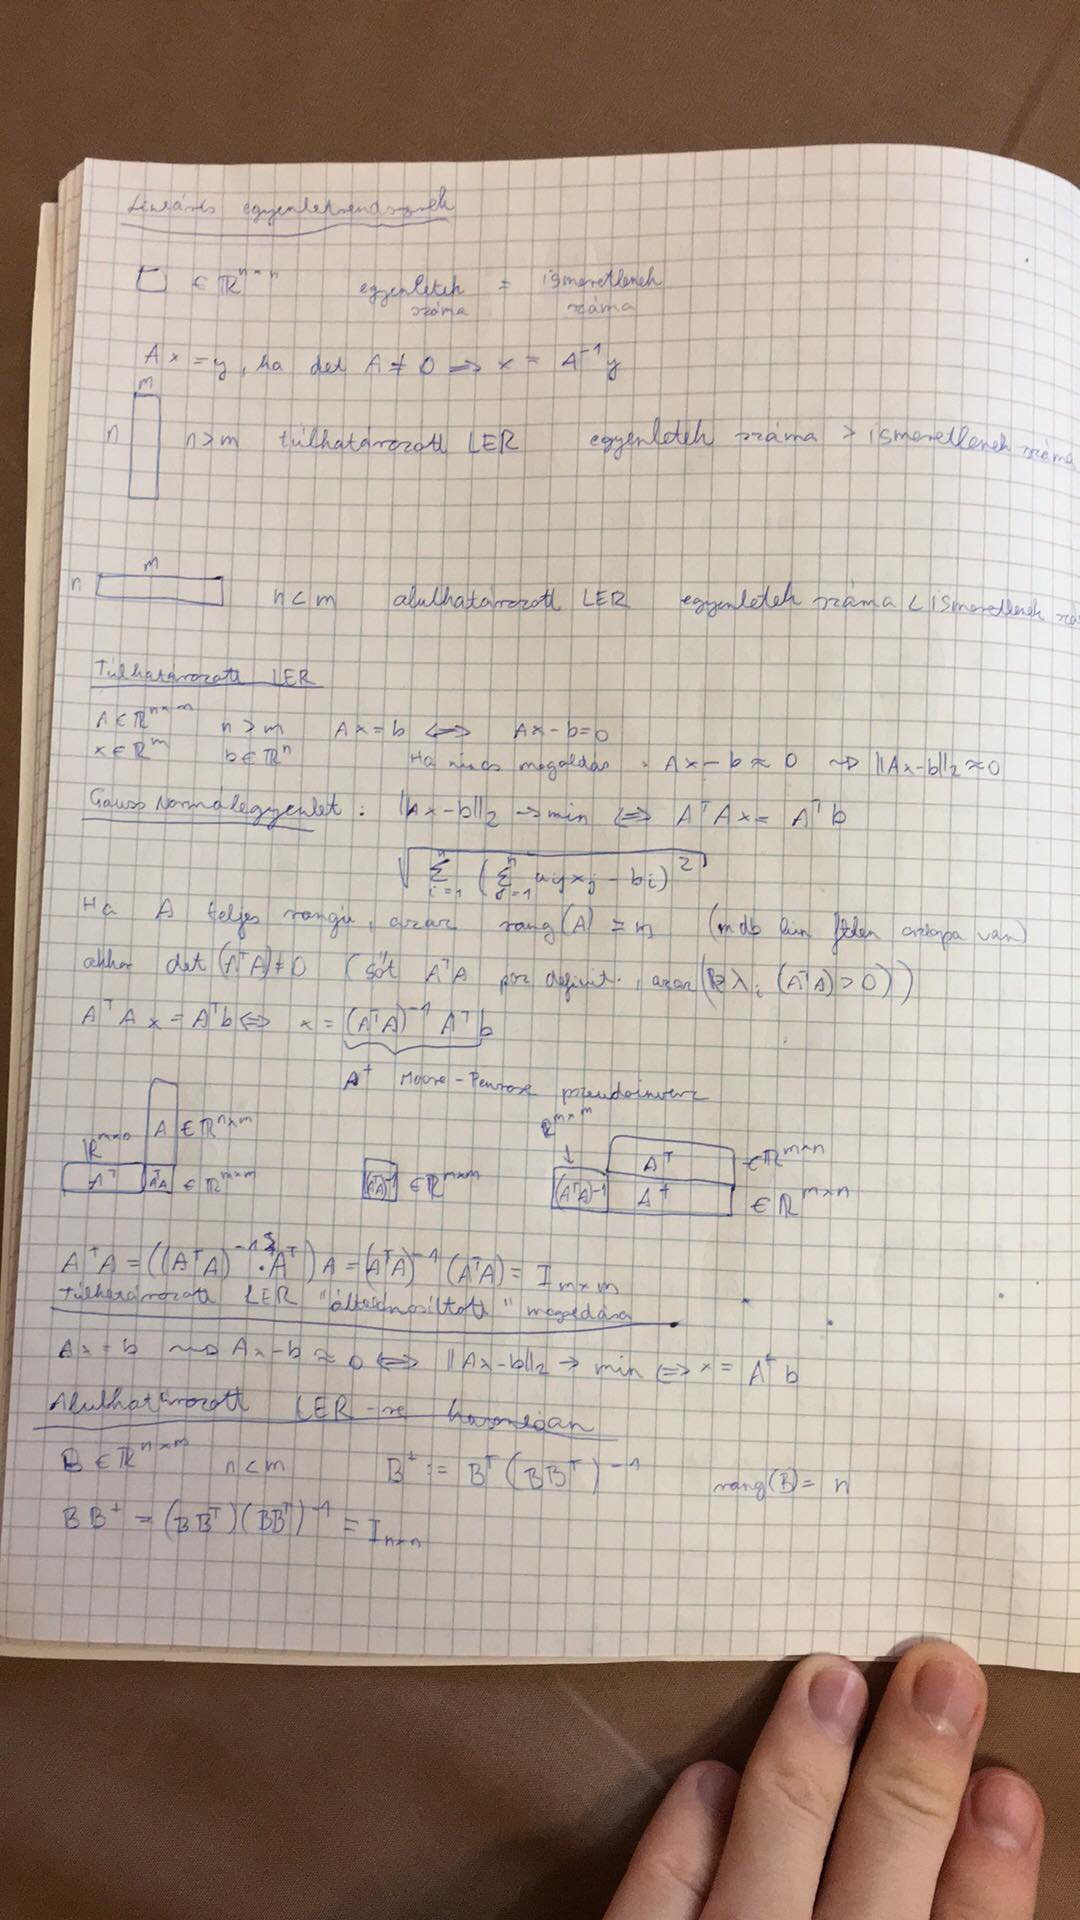 Lineáris egyenletrendszerek
∈ ℝ^{n×n} egyenletek száma = ismeretlenek száma
Ax = y, ha det A ≠ 0 ⟹ x = A^{-1} y
m
n n>m túlhatározott LER egyenletek száma > ismeretlenek száma
m
n n<m alulhatározott LER egyenletek száma < ismeretlenek szá
Túlhatározott LER
A∈ℝ^{n×m} n>m Ax=b ⟺ Ax-b=0
x∈ℝ^m b∈ℝ^n Ha nincs megoldás. Ax-b≈0 ⇝ ||Ax-b||_2≈0
Gauss Normálegyenlet: ||Ax-b||_2 → min ⟺ A^T A x = A^T b
√(∑_{i=1}^{n} (∑_{j=1}^{n} a_{ij}x_j - b_i)^2)
Ha A teljes rangú, azaz rang(A) = m (m db lin ftlen oszlopa van)
akkor det(A^T A)≠0 (sőt A^T A poz definit., azaz (λ_i (A^T A)>0))
A^T A x = A^T b ⟺ x = (A^T A)^{-1} A^T b
A^+ Moore-Penrose pseudoinverz
A ∈ℝ^{n×m} ℝ^{m×n} A^T A^T A ∈ℝ^{m×m}
(A^T A)^{-1} ∈ℝ^{m×m}
ℝ^{m×m} ↓ A^T ∈ℝ^{m×n}
(A^T A)^{-1} A^+ ∈ℝ^{m×n}
A^+ A = ((A^T A)^{-1} · A^T) A = (A^T A)^{-1} (A^T A) = I_{m×m}
Túlhatározott LER "általánosított" megoldása
Ax = b ⇝ Ax-b ≈ 0 ⟺ ||Ax-b||_2 → min ⟺ x = A^+ b
Alulhatározott LER-re hasonlóan
B ∈ ℝ^{n×m} n<m B^+ := B^T (BB^T)^{-1} rang(B) = n
BB^+ = (BB^T)(BB^T)^{-1} = I_{n×n}